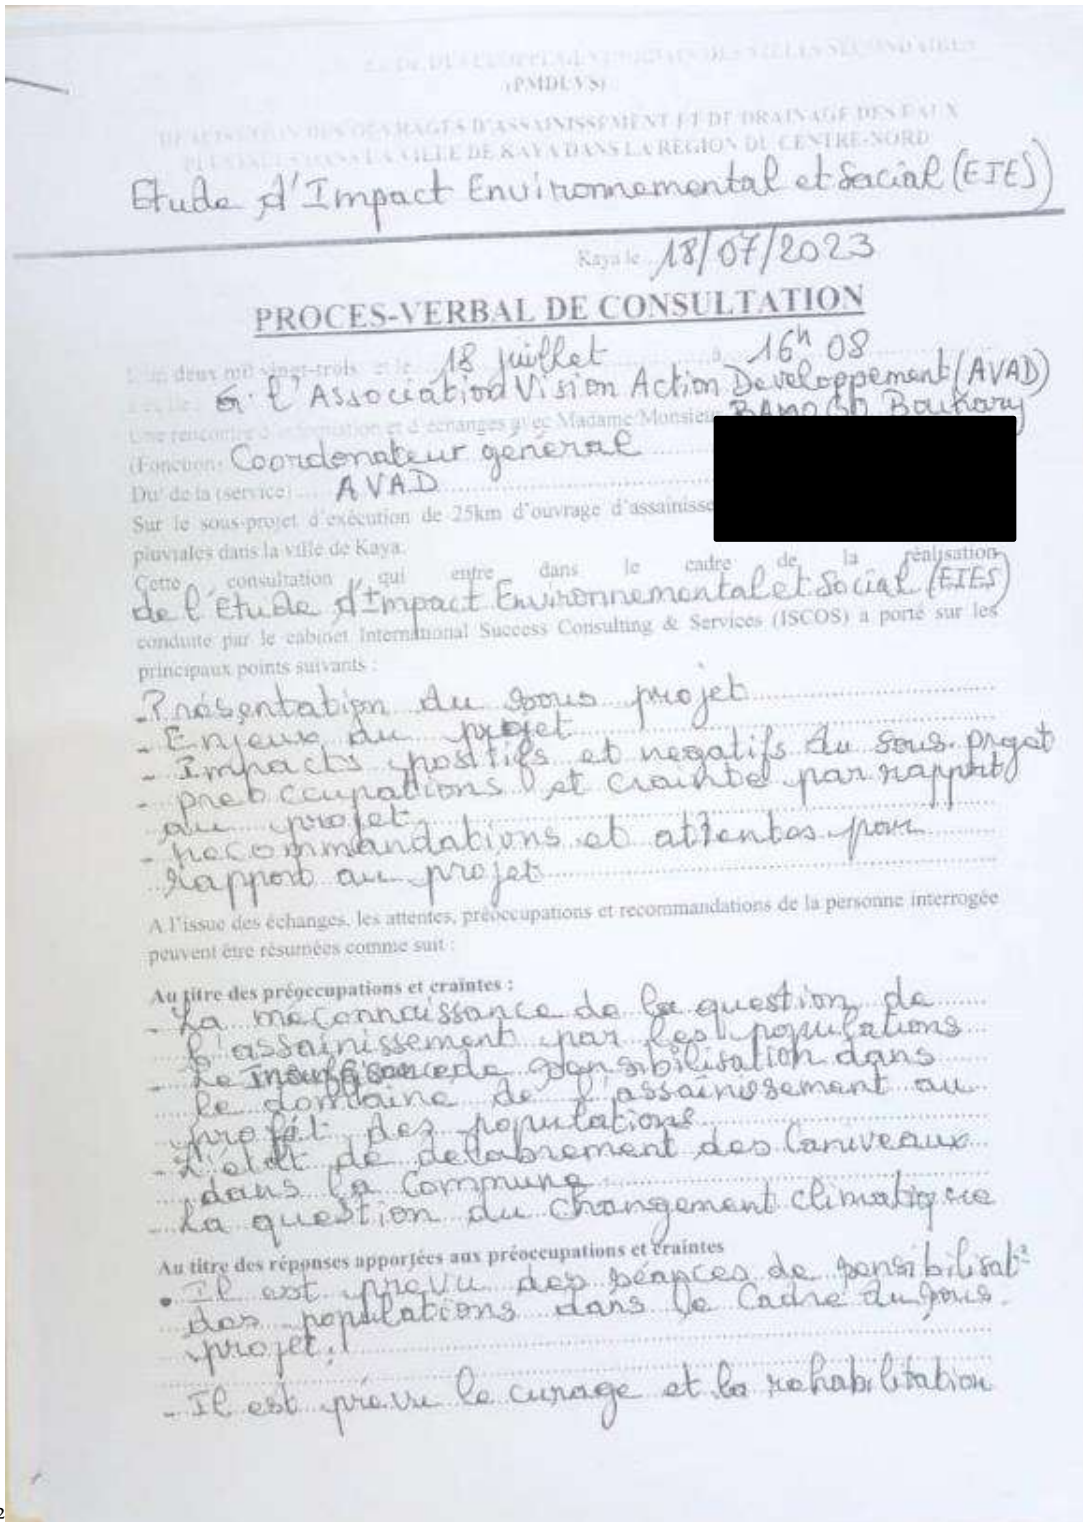 DE DEVELOPPEMENT URBAIN DES VILLES SECONDAIRES
(PMDUVS)
REALISATION DES OUVRAGES D'ASSAINISSEMENT ET DE DRAINAGE DES EAUX
PLUVIALES DANS LA VILLE DE KAYA DANS LA REGION DU CENTRE-NORD
Etude d'Impact Environnemental et Social (EIES)
Kaya le 18/07/2023
PROCES-VERBAL DE CONSULTATION
L'an deux mil vingt-trois et le 18 juillet à 16h 08
à l'Association Vision Action Developpement (AVAD)
Une rencontre d'information et d'échanges avec Madame/Monsieur Boukary
(Fonction) Coordonateur général
Du/ de la (service) AVAD
Sur le sous-projet d'exécution de 25km d'ouvrage d'assainisse
pluviales dans la ville de Kaya.
Cette consultation qui entre dans le cadre de la réalisation
de l'Etude d'Impact Environnemental et Social (EIES)
conduite par le cabinet International Success Consulting & Services (ISCOS) a porté sur les
principaux points suivants :
- Présentation du sous projet
- Enjeux du projet
- Impacts positifs et negatifs du sous-projet
- preoccupations et crainte par rapport
au projet
- recommandations et attentes par
rapport au projet
A l'issue des échanges, les attentes, préoccupations et recommandations de la personne interrogée
peuvent être résumées comme suit :
Au titre des préoccupations et craintes :
- La meconnaissance de la question de
l'assainissement par les populations
- Le Insuffisance de sensibilisation dans
le domaine de l'assainissement au
profit des populations
- L'état de delabrement des Caniveaux
dans la Commune
- La question du changement climatique
Au titre des réponses apportées aux préoccupations et craintes
• Il est prevu des séances de sensibilisat°
des populations dans le Cadre du sous-
projet.
- Il est prevu le curage et la rehabilitation
2